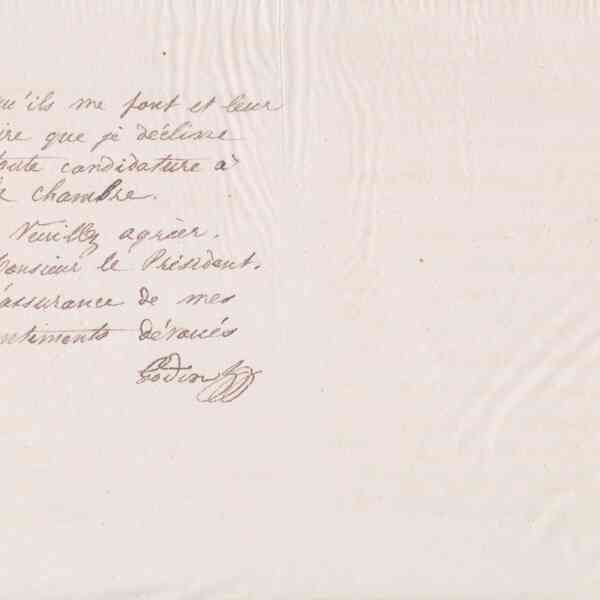 qu'ils me font et leur
ire que je décline
toute candidature à
la chambre.
Veuillez agréer.
Monsieur le Président.
l'assurance de mes
entiments dévoués
Godin